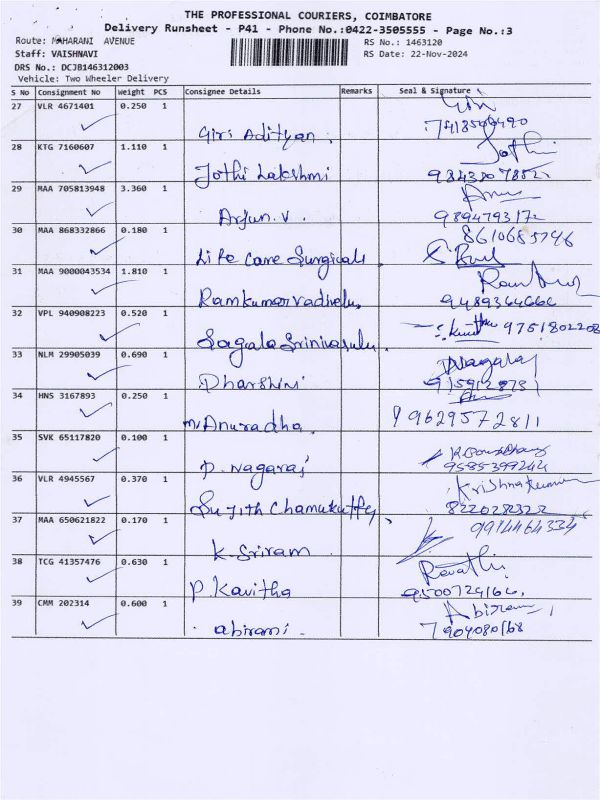 THE PROFESSIONAL COURIERS, COIMBATORE
Delivery Runsheet - P41 - Phone No.:0422-3505555 - Page No.:3
Route: MAHARANI AVENUE
RS No.: 1463120
Staff: VAISHNAVI
RS Date: 22-Nov-2024
DRS No.: DCJB146312003
Vehicle: Two Wheeler Delivery
S No Consignment No Weight PCS Consignee Details Remarks Seal & Signature
27 VLR 4671401 0.250 1
Giri Adityan.
28 KTG 7160607 1.110 1 Jothi
Jothi Lakshmi
29 MAA 705813948 3.360 1
Arjun.V. 9894793172
30 MAA 868332866 0.180 1 8610685746
Life Care Surgicals
31 MAA 9000043534 1.810 1
Ramkumar Vadivelu. 9489364666
32 VPL 940908223 0.520 1 9751802208
Sagala Srinivasulu.
33 NLM 29905039 0.690 1 Nagaraj
Dharshini
34 HNS 3167893 0.250 1 9629572811
M. Anuradha.
35 SVK 65117820 0.100 1
P. Nagaraj 9585399244
36 VLR 4945567 0.370 1 Krishnakumar
Sujith Chamukutty 8220282322
37 MAA 650621822 0.170 1 9914464334
K. Sriram
38 TCG 41357476 0.630 1 Revathi
P. Kavitha 9500729166
39 CMM 202314 0.600 1 Abirami
abirami. 7904080168